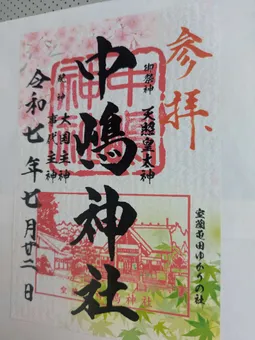 参拝
室蘭屯田ゆかりの社
御祭神 天照皇大神
中嶋神社
中嶋神社
大国主神
事代主神
令和七年七月廿二日